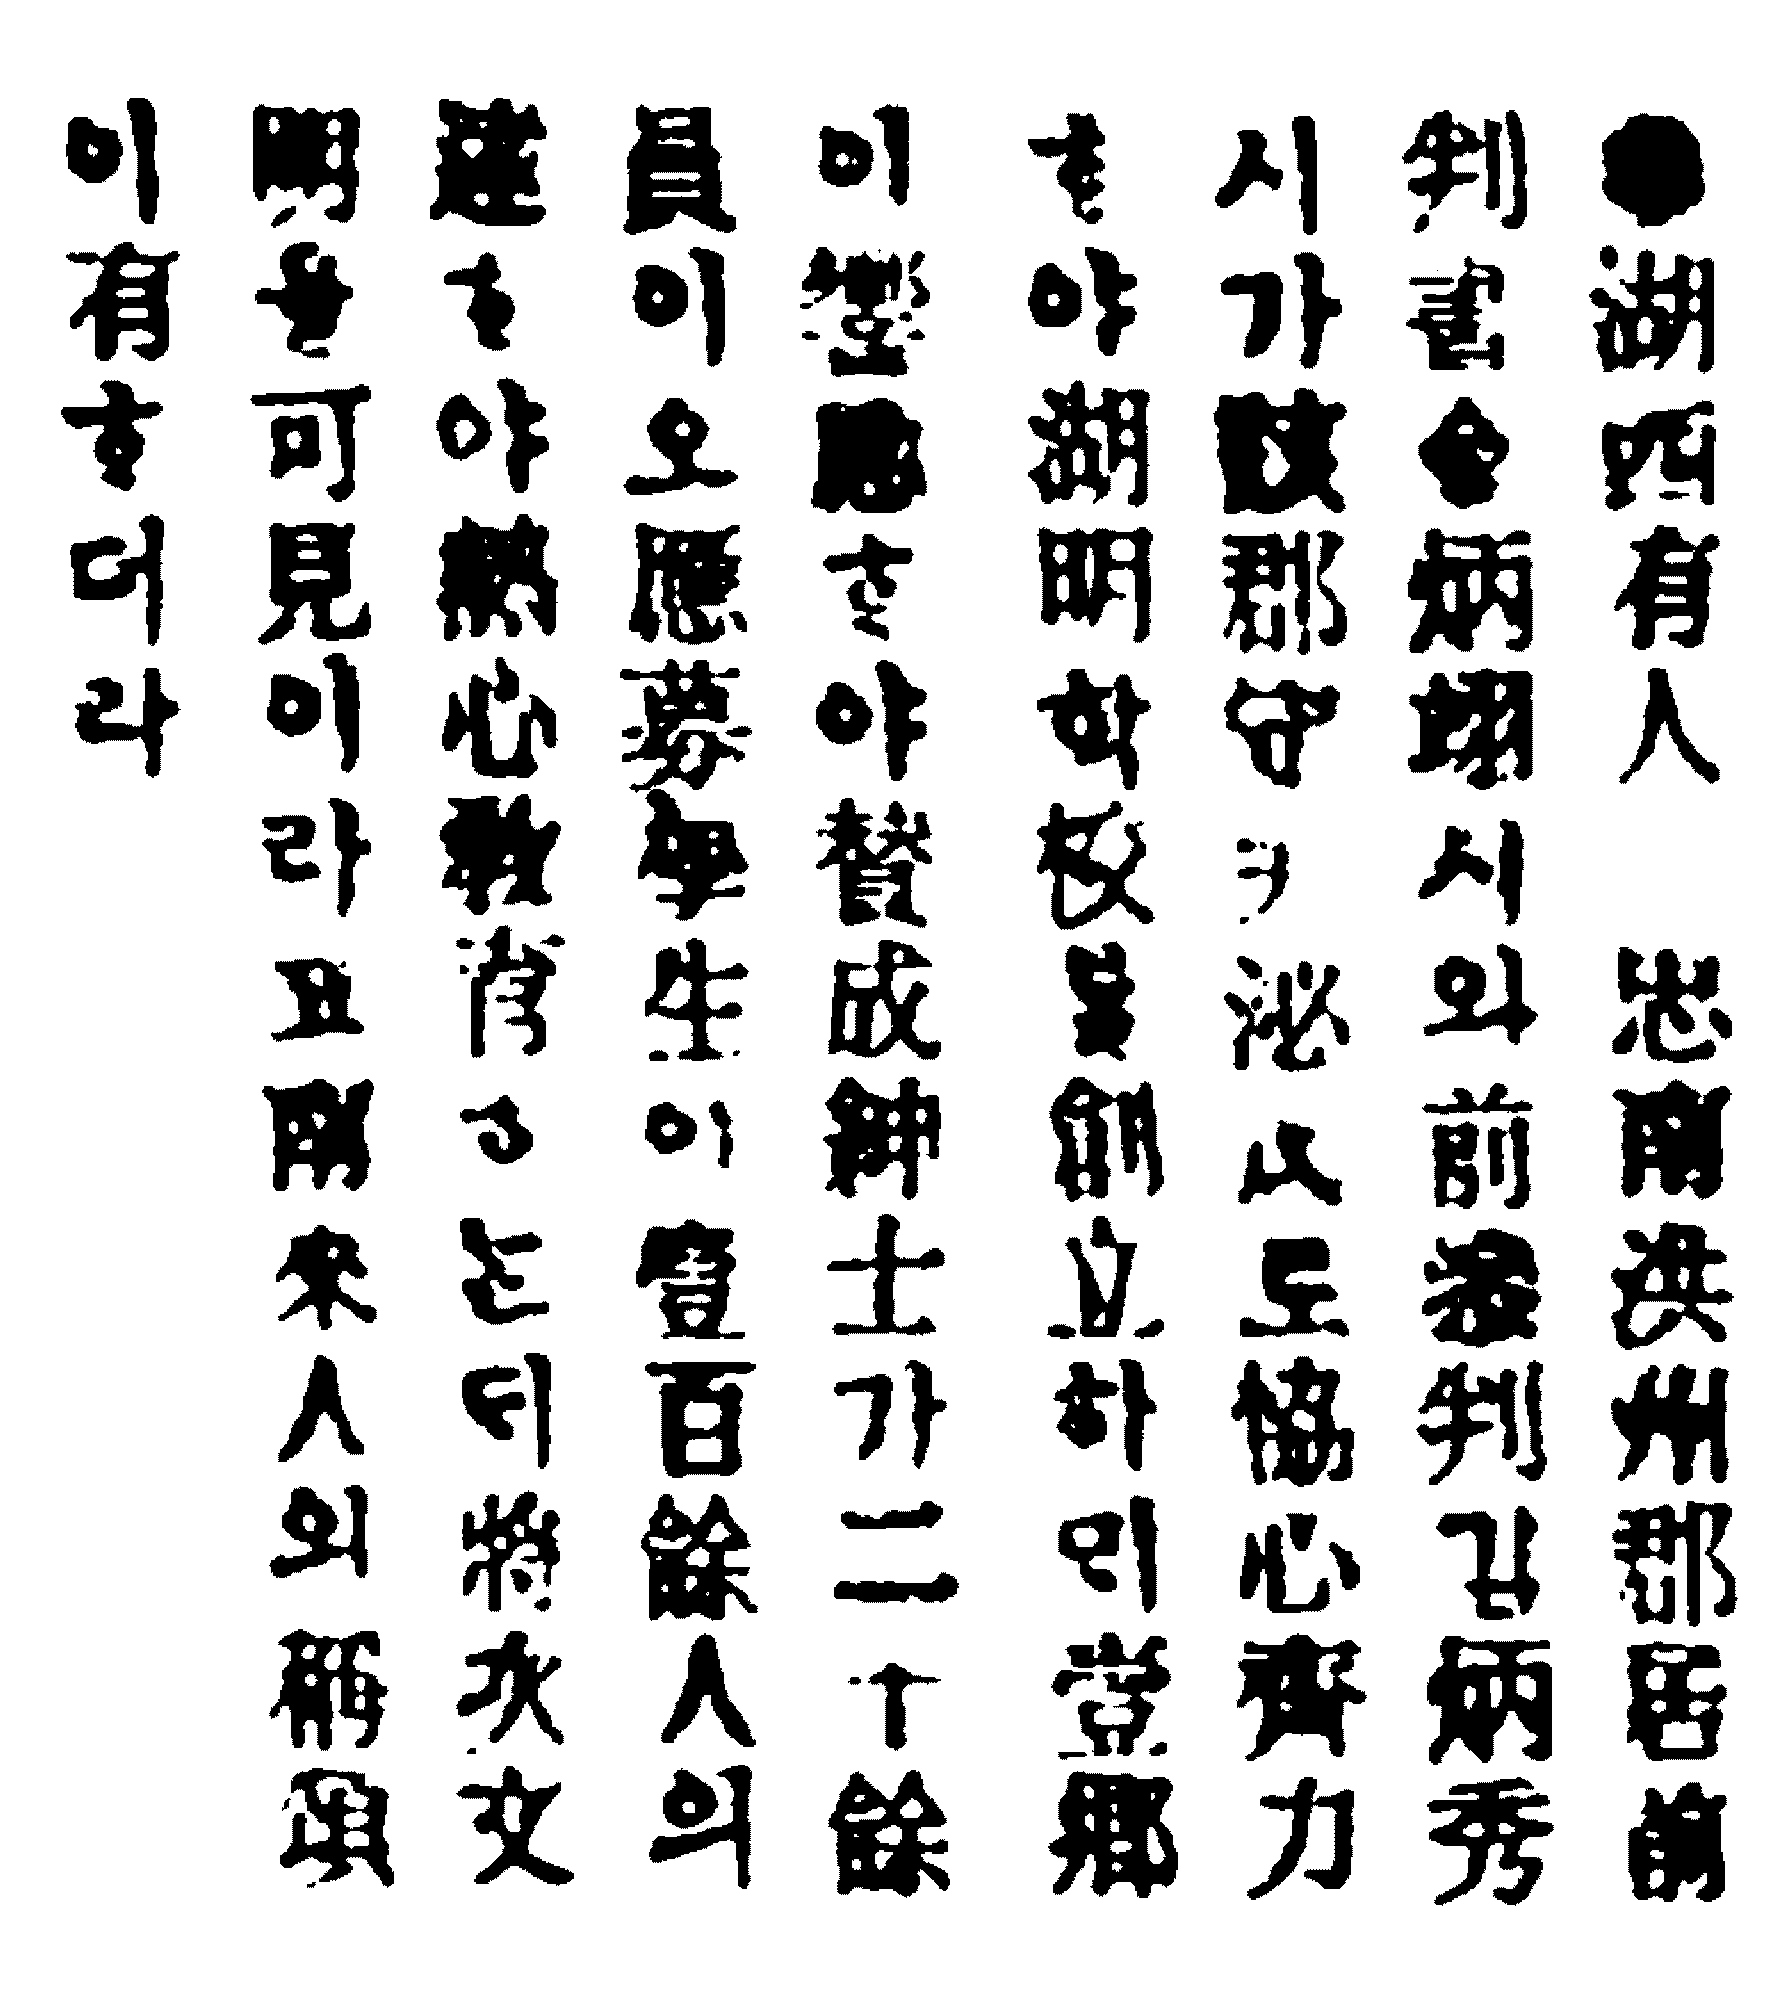 ●湖西有人 忠南洪州郡居前
判書金炳翊시와前參判김炳秀
시가該郡守泌氏로協心齊力
ᄒᆞ야湖明학校를創立하ᄆᆡ當鄕
이響應ᄒᆞ야贊成紳士가二十餘
員이오應募學生이壹百餘人의
達ᄒᆞ야熱心敎育ᄒᆞᄂᆞᆫᄃᆡ將次文
明을可見이라고南來人의稱頌
이有ᄒᆞ더라